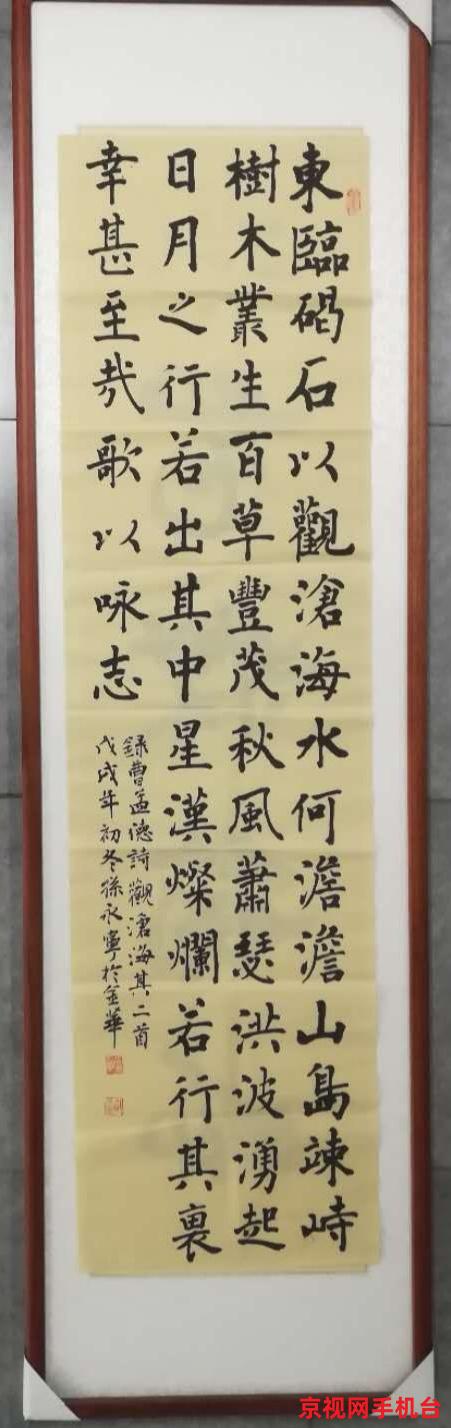 東臨碣石以觀滄海水何澹澹山島竦峙
樹木叢生百草豐茂秋風蕭瑟洪波湧起
日月之行若出其中星漢燦爛若行其裏
幸甚至哉歌以咏志
録曹孟德詩觀滄海其二首
戊戌年初冬孫永寧於金華
京视网手机台